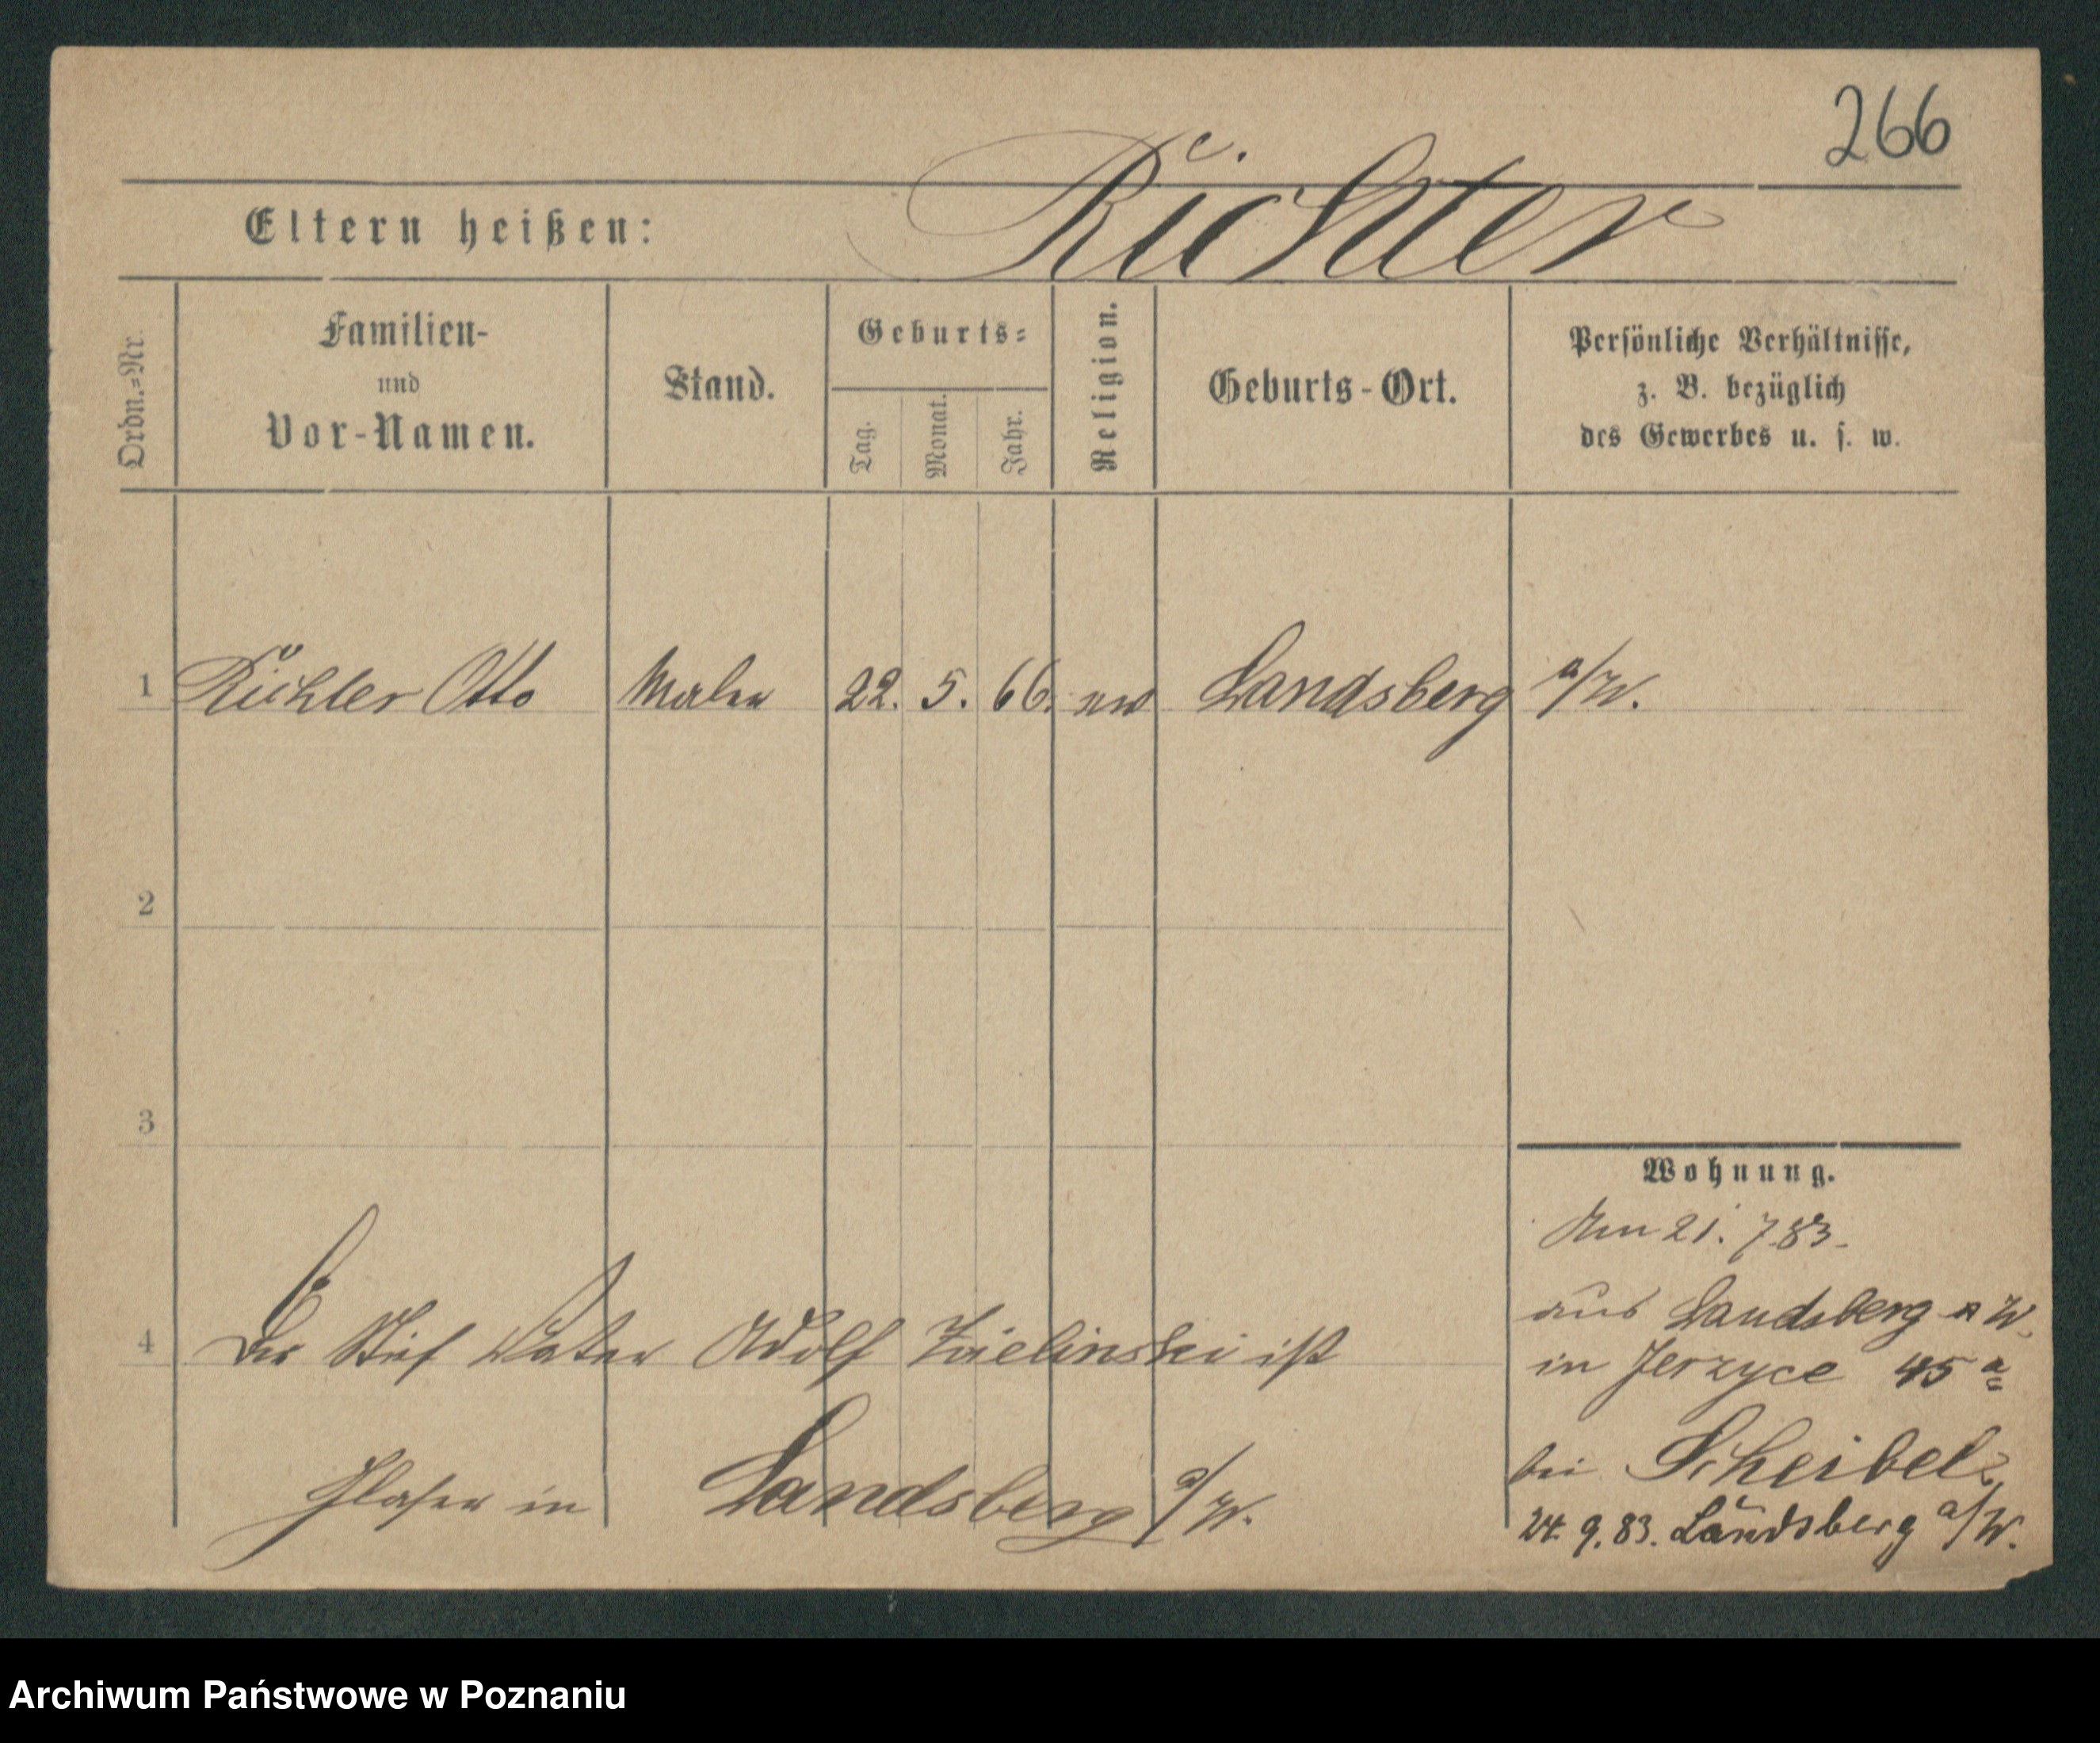 266
Eltern heißen: Richter
Ordn.-Nr.
Familien-
und
Vor-Namen.
Stand.
Geburts-
Tag.
Monat.
Jahr.
Religion.
Geburts-Ort.
Persönliche Verhältnisse,
z. B. bezüglich
des Gewerbes u. s. w.
1 Richter Otto Maler 22. 5. 66. ev Landsberg a/W.
2
3
Wohnung.
Am 21. 7 83.
aus Landsberg a W.
in Jerzyce 45 a
bei Scheibel
24. 9. 83. Landsberg a/W.
4 Der Stief Vater Adolf Zielinski ist
Glaser in Landsberg a/W.
Archiwum Państwowe w Poznaniu